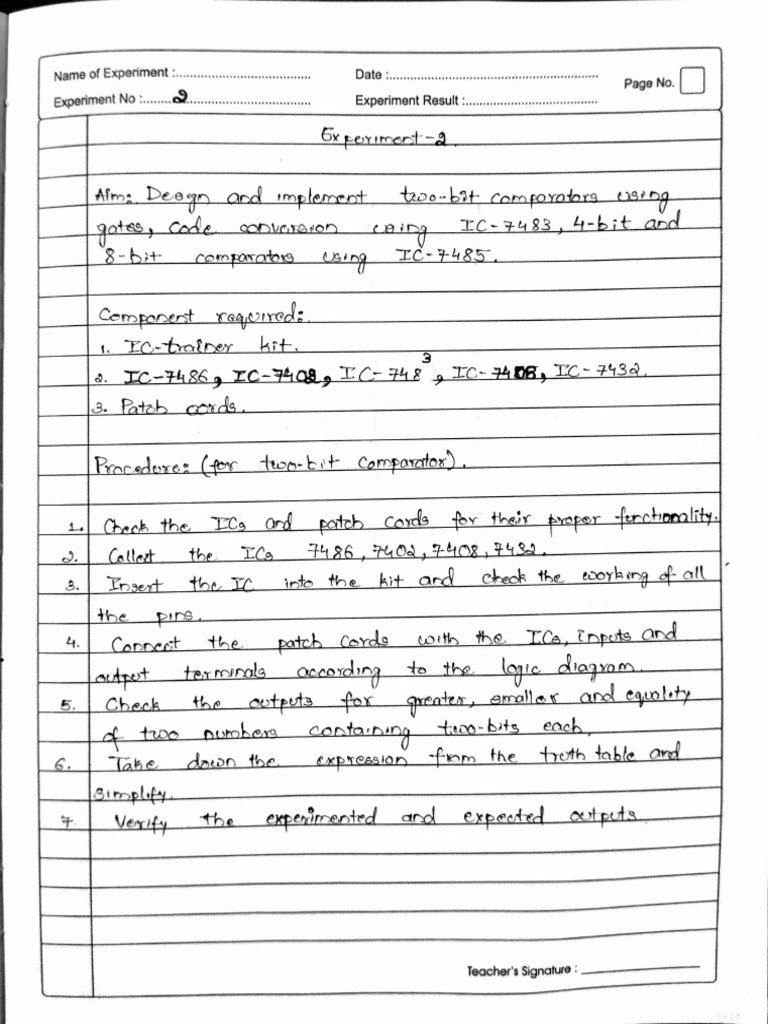 Name of Experiment :.................................... Date :........................................................ Page No.
Experiment No :.........2.................................. Experiment Result :...................................
Experiment-2.
Aim: Design and implement two-bit comparators using
gates, code conversion using IC-7483, 4-bit and
8-bit comparators using IC-7485.
Component required:
1. IC-trainer kit.
2. IC-7486, IC-7402, IC-7483, IC-7408, IC-7432.
3. Patch cords.
Procedure: (for two-bit comparator).
1. Check the ICs and patch cords for their proper functionality.
2. Collect the ICs 7486, 7402, 7408, 7432.
3. Insert the IC into the kit and check the working of all
the pins.
4. Connect the patch cords with the ICs, inputs and
output terminals according to the logic diagram.
5. Check the outputs for greater, smaller and equality
of two numbers containing two-bits each.
6. Take down the expression from the truth table and
simplify.
7. Verify the experimented and expected outputs
Teacher's Signature : ________________